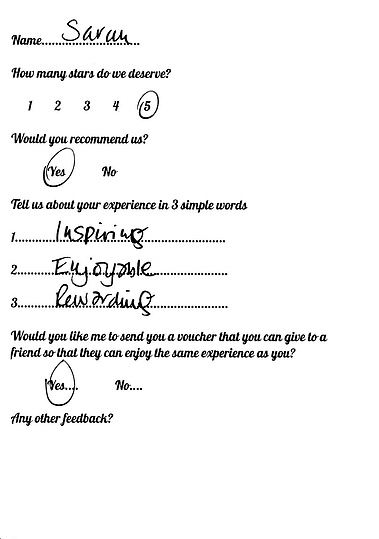 Name...........Sarah...........
How many stars do we deserve?
1 2 3 4 5
Would you recommend us?
Yes No
Tell us about your experience in 3 simple words
1............Inspiring....................
2............Enjoyable....................
3............Rewarding....................
Would you like me to send you a voucher that you can give to a
friend so that they can enjoy the same experience as you?
Yes.... No....
Any other feedback?